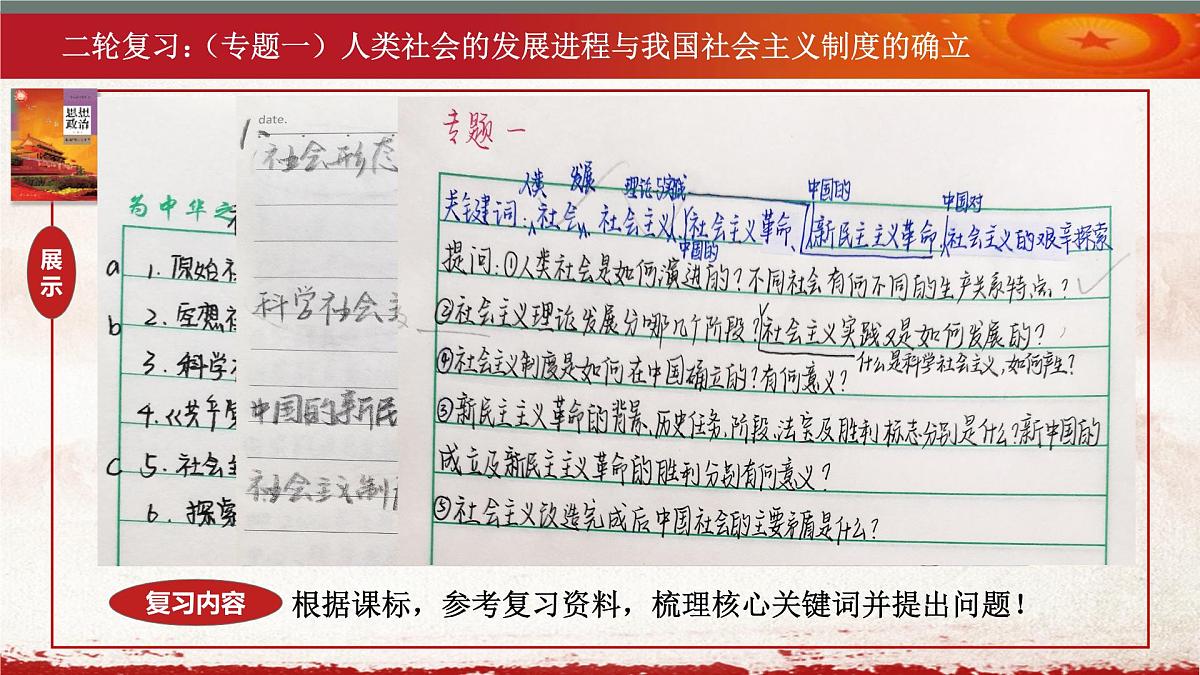 二轮复习：（专题一）人类社会的发展进程与我国社会主义制度的确立
思想
政治
展示
为中华之
a 1. 原始社
2. 空想社
b
3. 科学
4.《共产
c 5. 社会主
6. 探索
date.
1.
社会形态
科学社会主
中国的新民
社会主义制
专题一
人类 发展 理论与实践 中国的 中国对
关键词：社会、社会主义、社会主义革命、新民主主义革命，社会主义的艰辛探索
中国的
提问：①人类社会是如何演进的？不同社会有何不同的生产关系特点？
②社会主义理论发展分哪几个阶段？社会主义实践又是如何发展的？
什么是科学社会主义，如何产生？
④社会主义制度是如何在中国确立的？有何意义？
③新民主主义革命的背景、历史任务、阶段、法宝及胜利标志分别是什么？新中国的
成立及新民主主义革命的胜利分别有何意义？
⑤社会主义改造完成后中国社会的主要矛盾是什么？
复习内容
根据课标，参考复习资料，梳理核心关键词并提出问题！